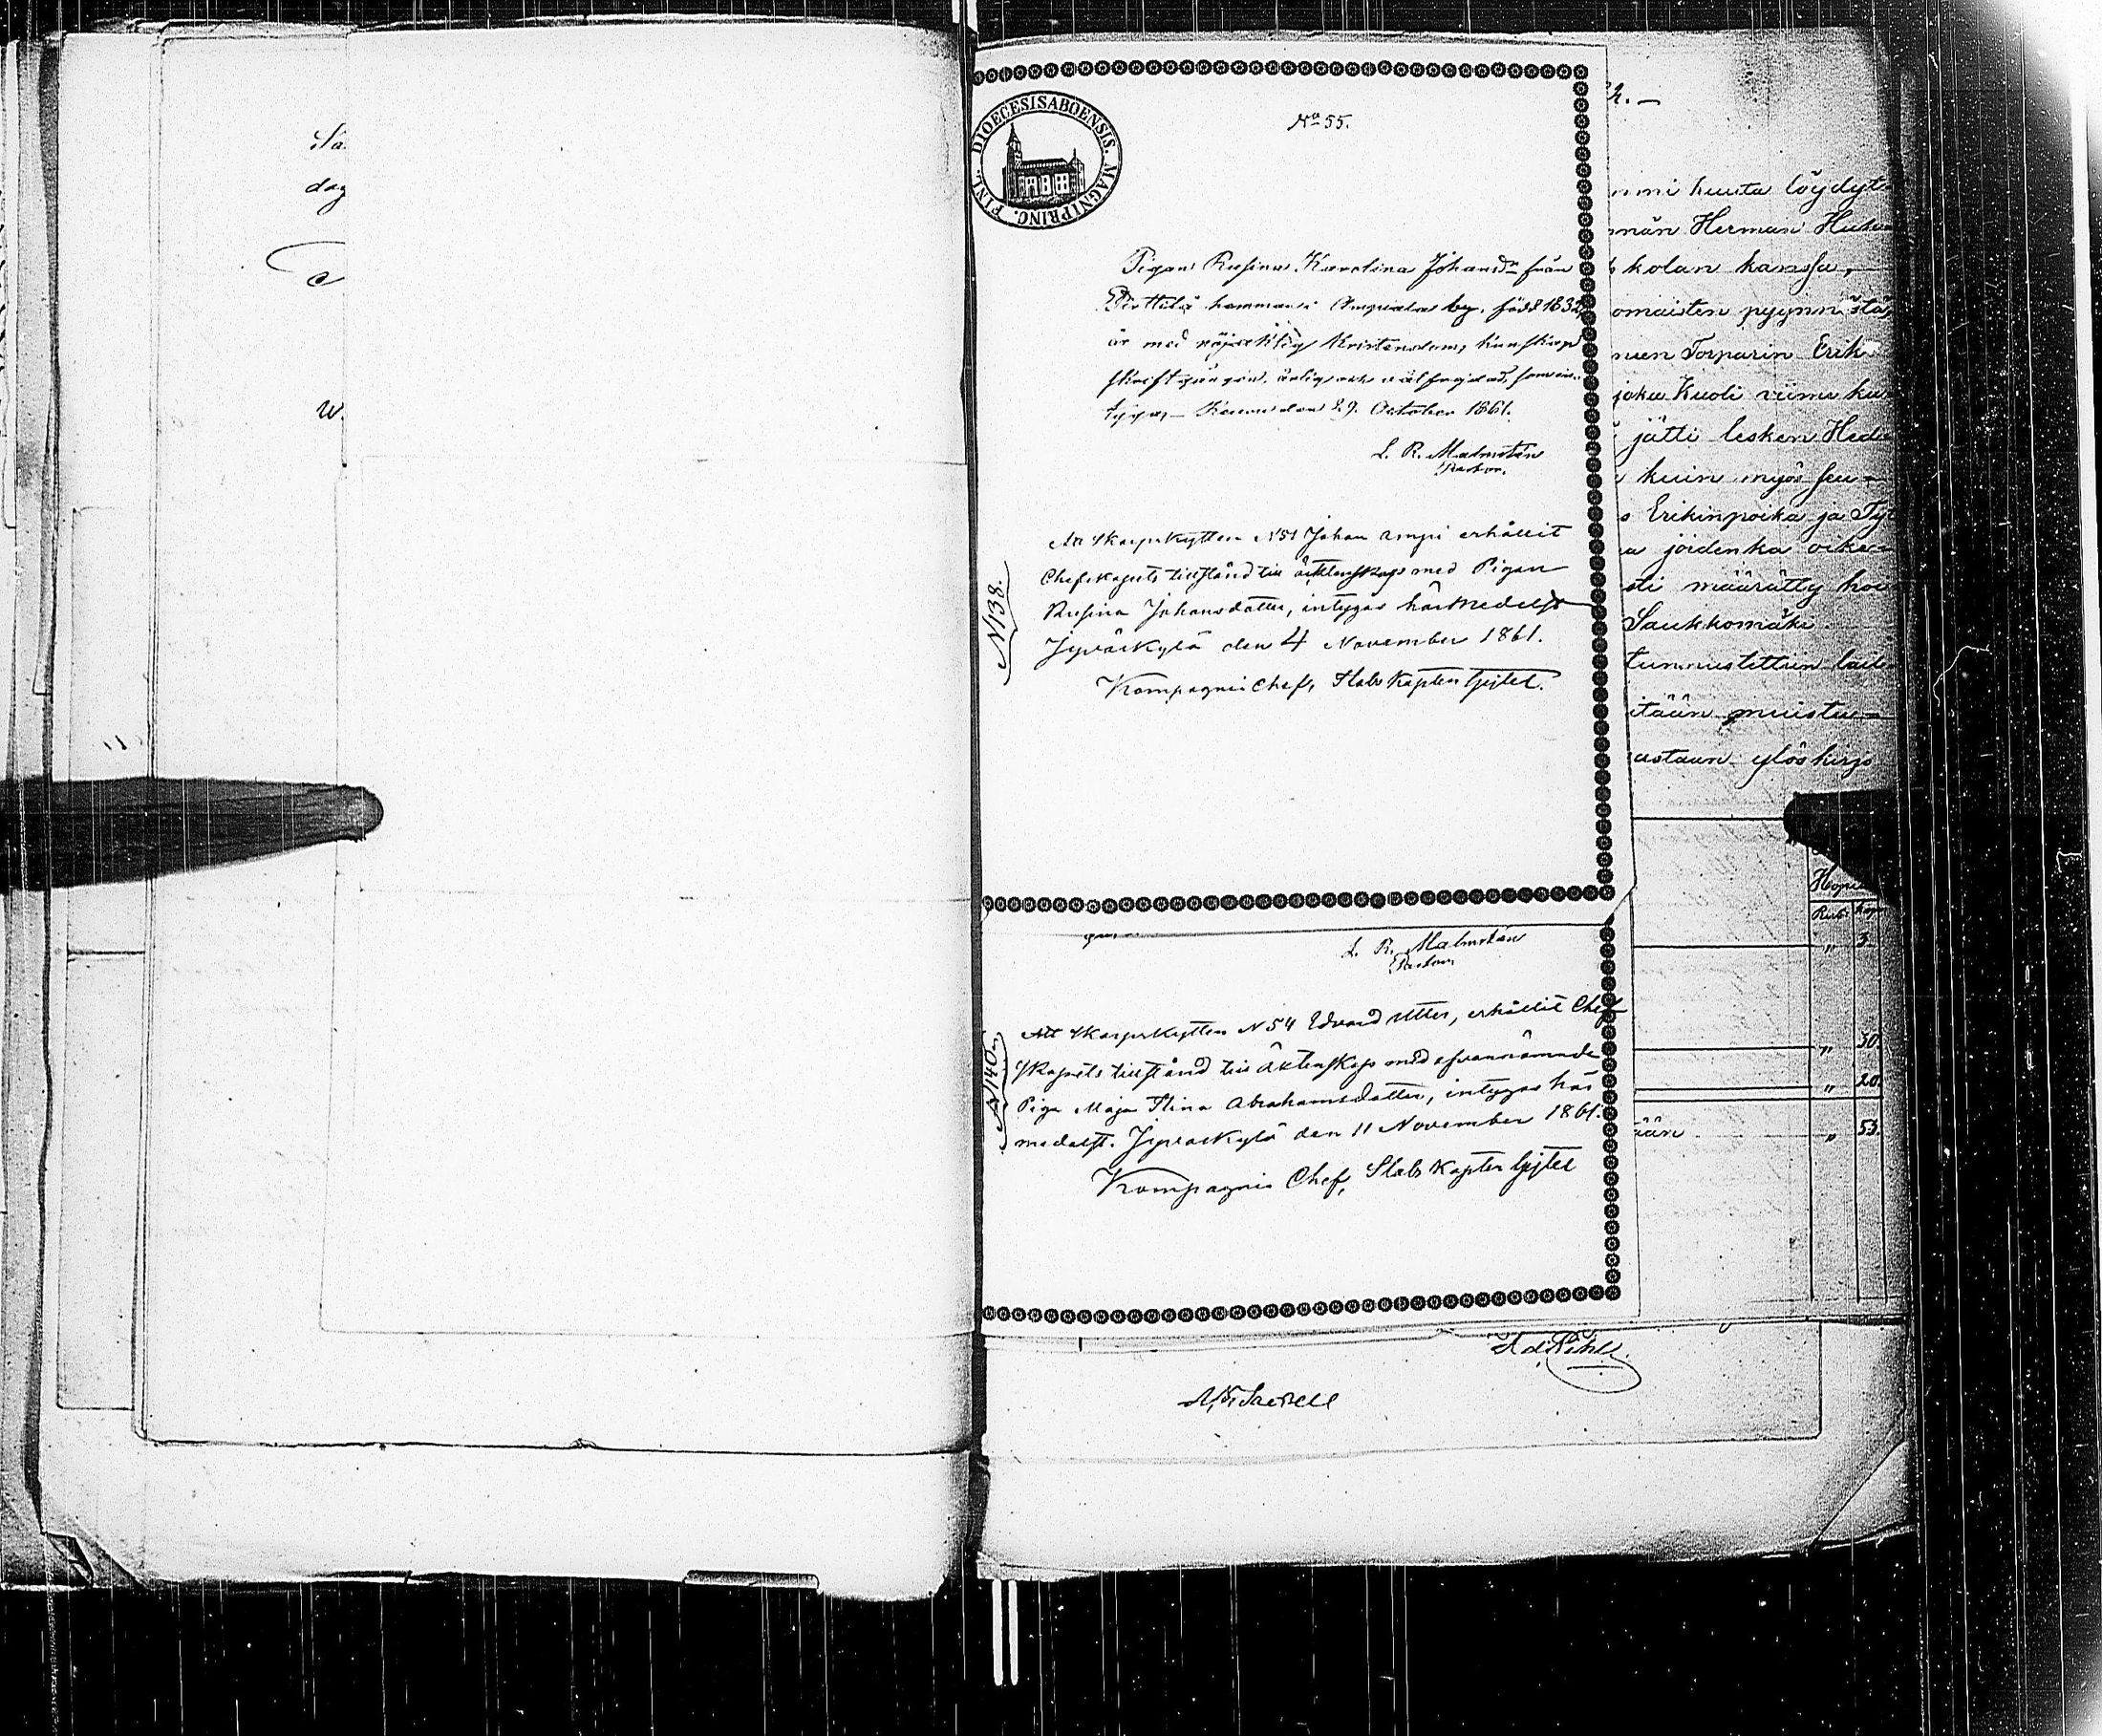 Sa
dag
C
W.
DIOECESIS ABOENSIS. MAGNI PRINC. FINL.
No 55.
Pigan Rusina Karolina Johansdr från
Perttilä hemman i Ampiala by, född 1832,
är med nöjaktig kristendoms kunskap
skriftgången, ärlig och välfrejdad, som in-
tygas Keuru den 29. October 1861.
L. R. Malmstén
Pastor.
N 138.
Att Skarpskytten N 51 Johan Ampi erhållit
Chefskapets tillstånd till äktenskap med Pigan
Rusina Johansdotter, intygas härmedelst
Jyväskylä den 4 November 1861.
Kompagnie Chef, Stabs Kapten
L. R. Malmstén
Pastor
N 140.
Att Skarpskytten N 54 Edvard Utter, erhållit Chef
skapets tillstånd till Äktenskap med ofvannämnde
Piga Maja Stina Abrahamsdotter, intygas här
medelst. Jyväskylä den 11 November 1861.
Kompagnie Chef, Stabs Kapten
mi kuuta löydyt
nnän Herman
kolan kanssa,
omaisten pyynnöstä,
Torparin Erik
joka Kuoli viime ku
jätti lesken Hed
kuin myös seu-
Erikinpoika ja Ty
joidenka oike
sti määrätty
Saukkomäki
tunnustettiin
itään muistu-
ustaan ylöskirjo
Hope
Rub. kop.
" 3
" 50.
" 20.
ään " 53.